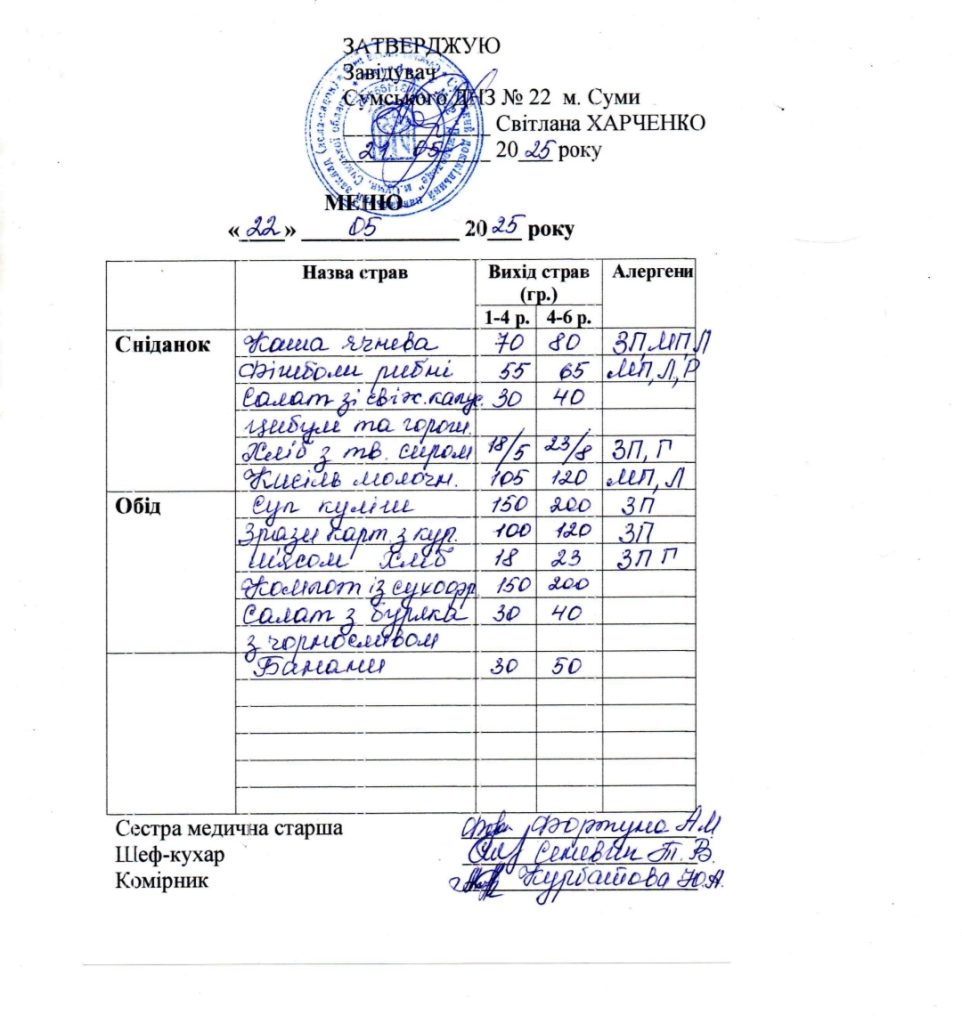 ЗАТВЕРДЖУЮ
Завідувач
Сумського ДНЗ № 22 м. Суми
Світлана ХАРЧЕНКО
21 05 2025 року
МЕНЮ
«22» 05 2025 року
Назва страв Вихід страв (гр.) Алергени
1-4 р. 4-6 р.
Сніданок Каша ячнева 70 80 ЗП, МП, Л
Фішболи рибні 55 65 МП, Л, Р
Салат зі свіж. капус. 30 40
цибулі та горош.
Хліб з тв. сиром 18/5 23/8 ЗП, Г
Кисіль молочн. 105 120 МП, Л
Обід Суп куліш 150 200 ЗП
Зрази карт. з кур. 100 120 ЗП
м'ясом Хліб 18 23 ЗП Г
Компот із сухофр. 150 200
Салат з буряка 30 40
з чорносливом
Банани 30 50
Сестра медична старша Фортуна А.М
Шеф-кухар Т.В.
Комірник Курбатова Ю.А.